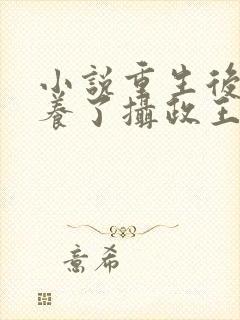 小説重生後
養了攝政王
意希